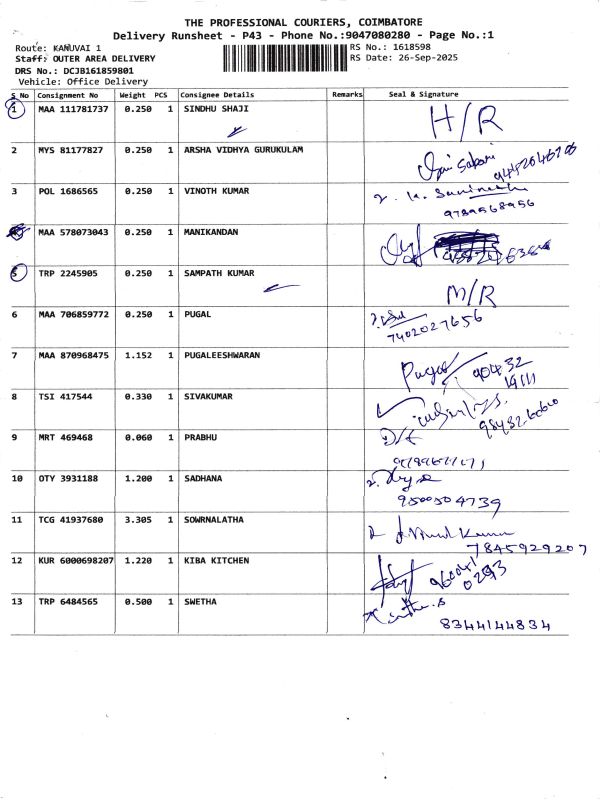 THE PROFESSIONAL COURIERS, COIMBATORE
Delivery Runsheet - P43 - Phone No.:9047080280 - Page No.:1
Route: KANUVAI 1 RS No.: 1618598
Staff: OUTER AREA DELIVERY RS Date: 26-Sep-2025
DRS No.: DCJB161859801
Vehicle: Office Delivery
S No Consignment No Weight PCS Consignee Details Remarks Seal & Signature
1 MAA 111781737 0.250 1 SINDHU SHAJI H/R
2 MYS 81177827 0.250 1 ARSHA VIDHYA GURUKULAM
3 POL 1686565 0.250 1 VINOTH KUMAR
9789568956
MAA 578073043 0.250 1 MANIKANDAN
5 TRP 2245905 0.250 1 SAMPATH KUMAR M/R
6 MAA 706859772 0.250 1 PUGAL
7402027656
7 MAA 870968475 1.152 1 PUGALEESHWARAN Pugal 90432
19111
8 TSI 417544 0.330 1 SIVAKUMAR
9 MRT 469468 0.060 1 PRABHU
10 OTY 3931188 1.200 1 SADHANA
9500504739
11 TCG 41937680 3.305 1 SOWRNALATHA
7845929207
12 KUR 6000698207 1.220 1 KIBA KITCHEN 960041
0293
13 TRP 6484565 0.500 1 SWETHA
8344144834